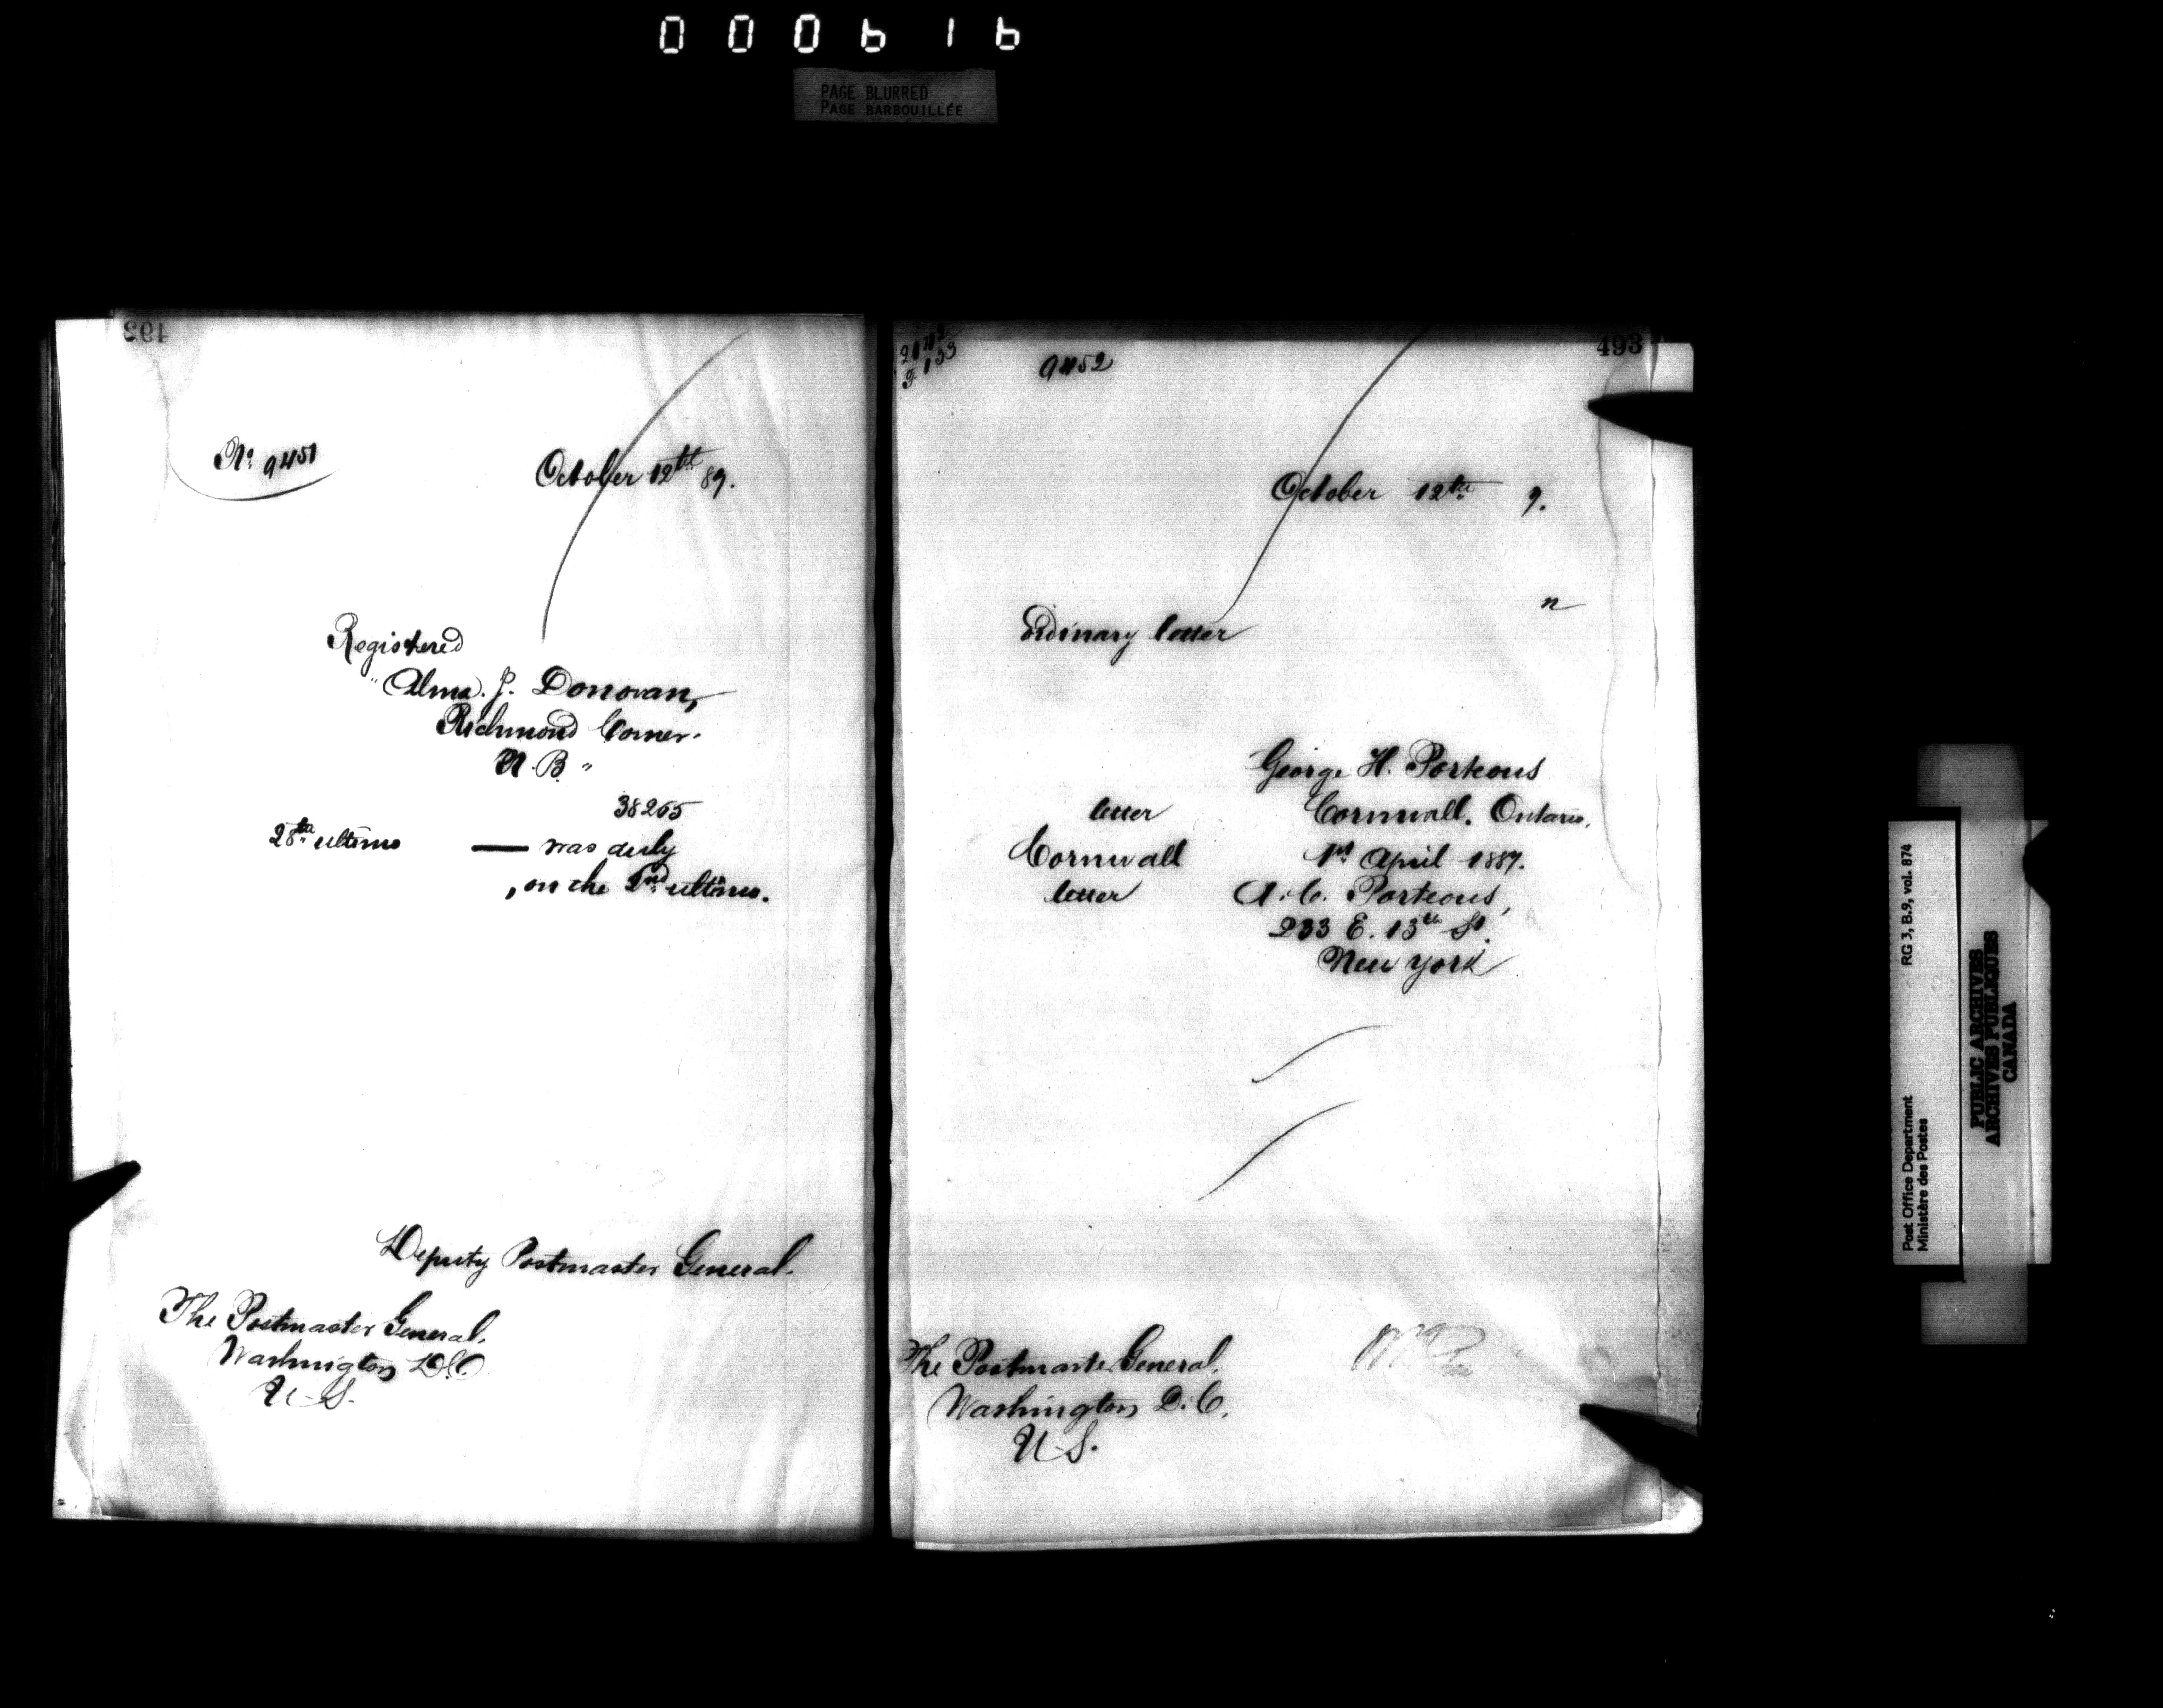 000616
PAGE BLURRED
PAGE BARBOUILLÉE
492
No. 9451
October 12th 89.
Registered
"Alma. J. Donovan,
Richmond Corner.
N. B."
38265
28th ultimo — was duly
, on the 2nd ultimo.
Deputy Postmaster General.
The Postmaster General,
Washington D.C.
U.S.
493
9452
October 12th 9.
n
Ordinary letter
George H. Porteous
letter Cornwall. Ontario.
Cornwall 1st April 1889.
letter A. C. Porteous,
233 E. 13th St.
New York
The Postmaste General,
Washington D.C.
U.S.
Post Office Department RG 3, B.9, vol. 874
Ministère des Postes
PUBLIC ARCHIVES
ARCHIVES PUBLIQUES
CANADA